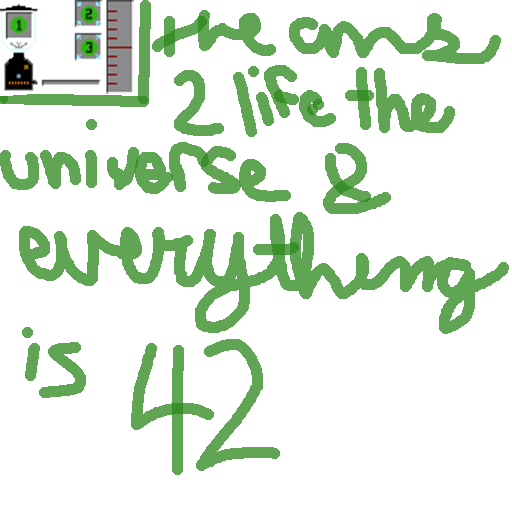 1
2
3
the ans
2 life the
universe &
everything
is 42